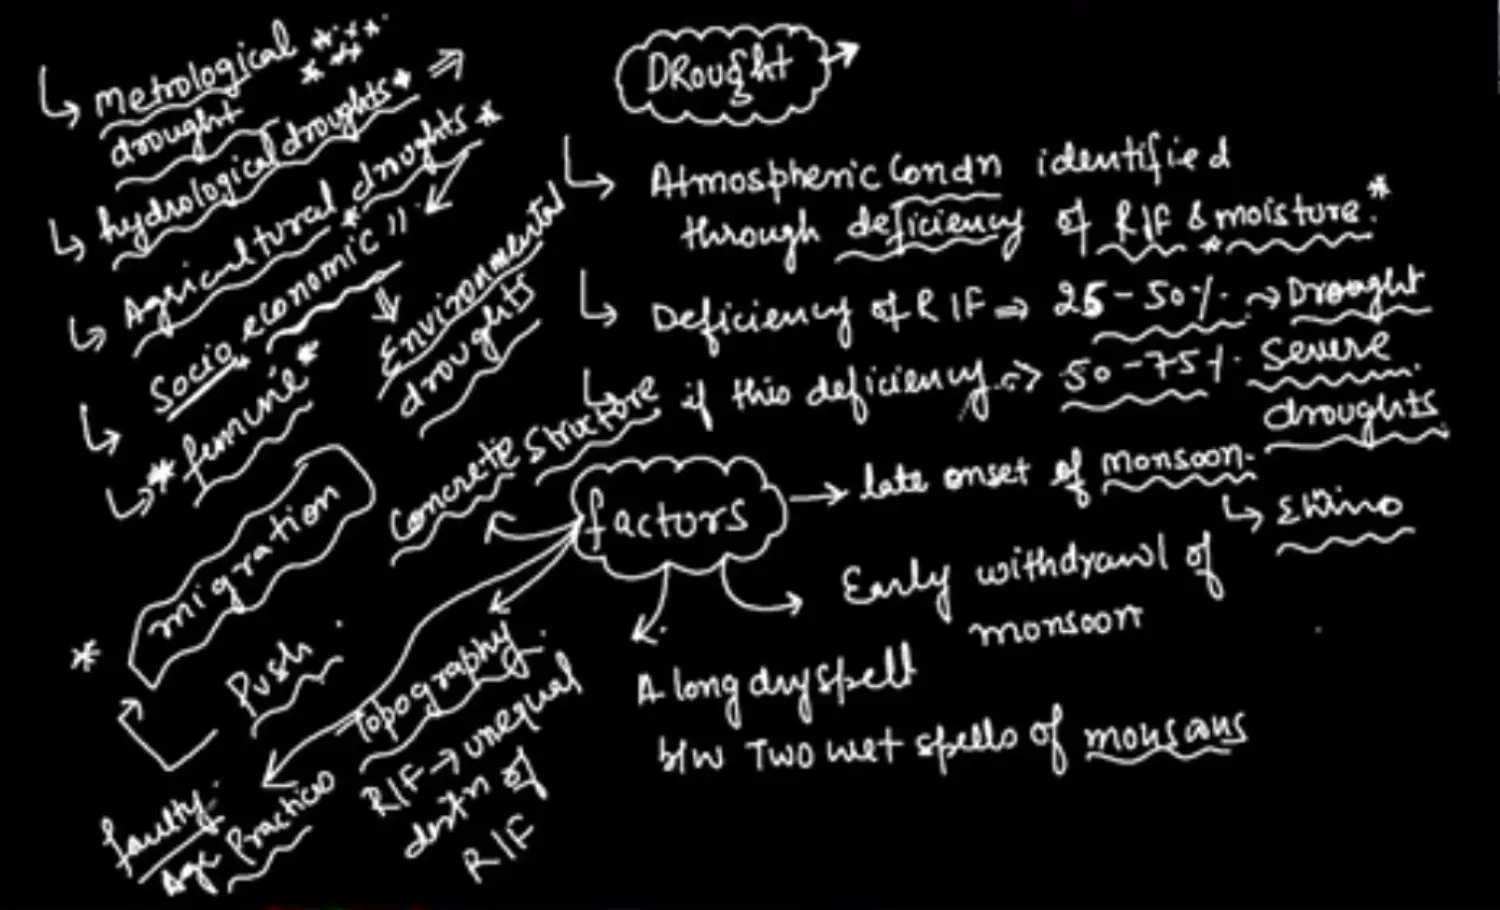 DRought
Atmospheric Condn identified
through deficiency of R/F & moisture.
Deficiency of R/F ⇒ 25-50% → Drought
if this deficiency ⇒ 50-75% Severe
droughts
factors
late onset of monsoon.
Elnino
Early withdrawl of
monsoon
A long dry spell
b/w Two wet spells of monsoons
Topography
R/F → unequal
destn of
R/F
faulty
Agr Practices
Concrete structure
Metrological
drought
hydrological droughts
Agricultural droughts
Socio economic "
Environmental
droughts
femine
migration
Push